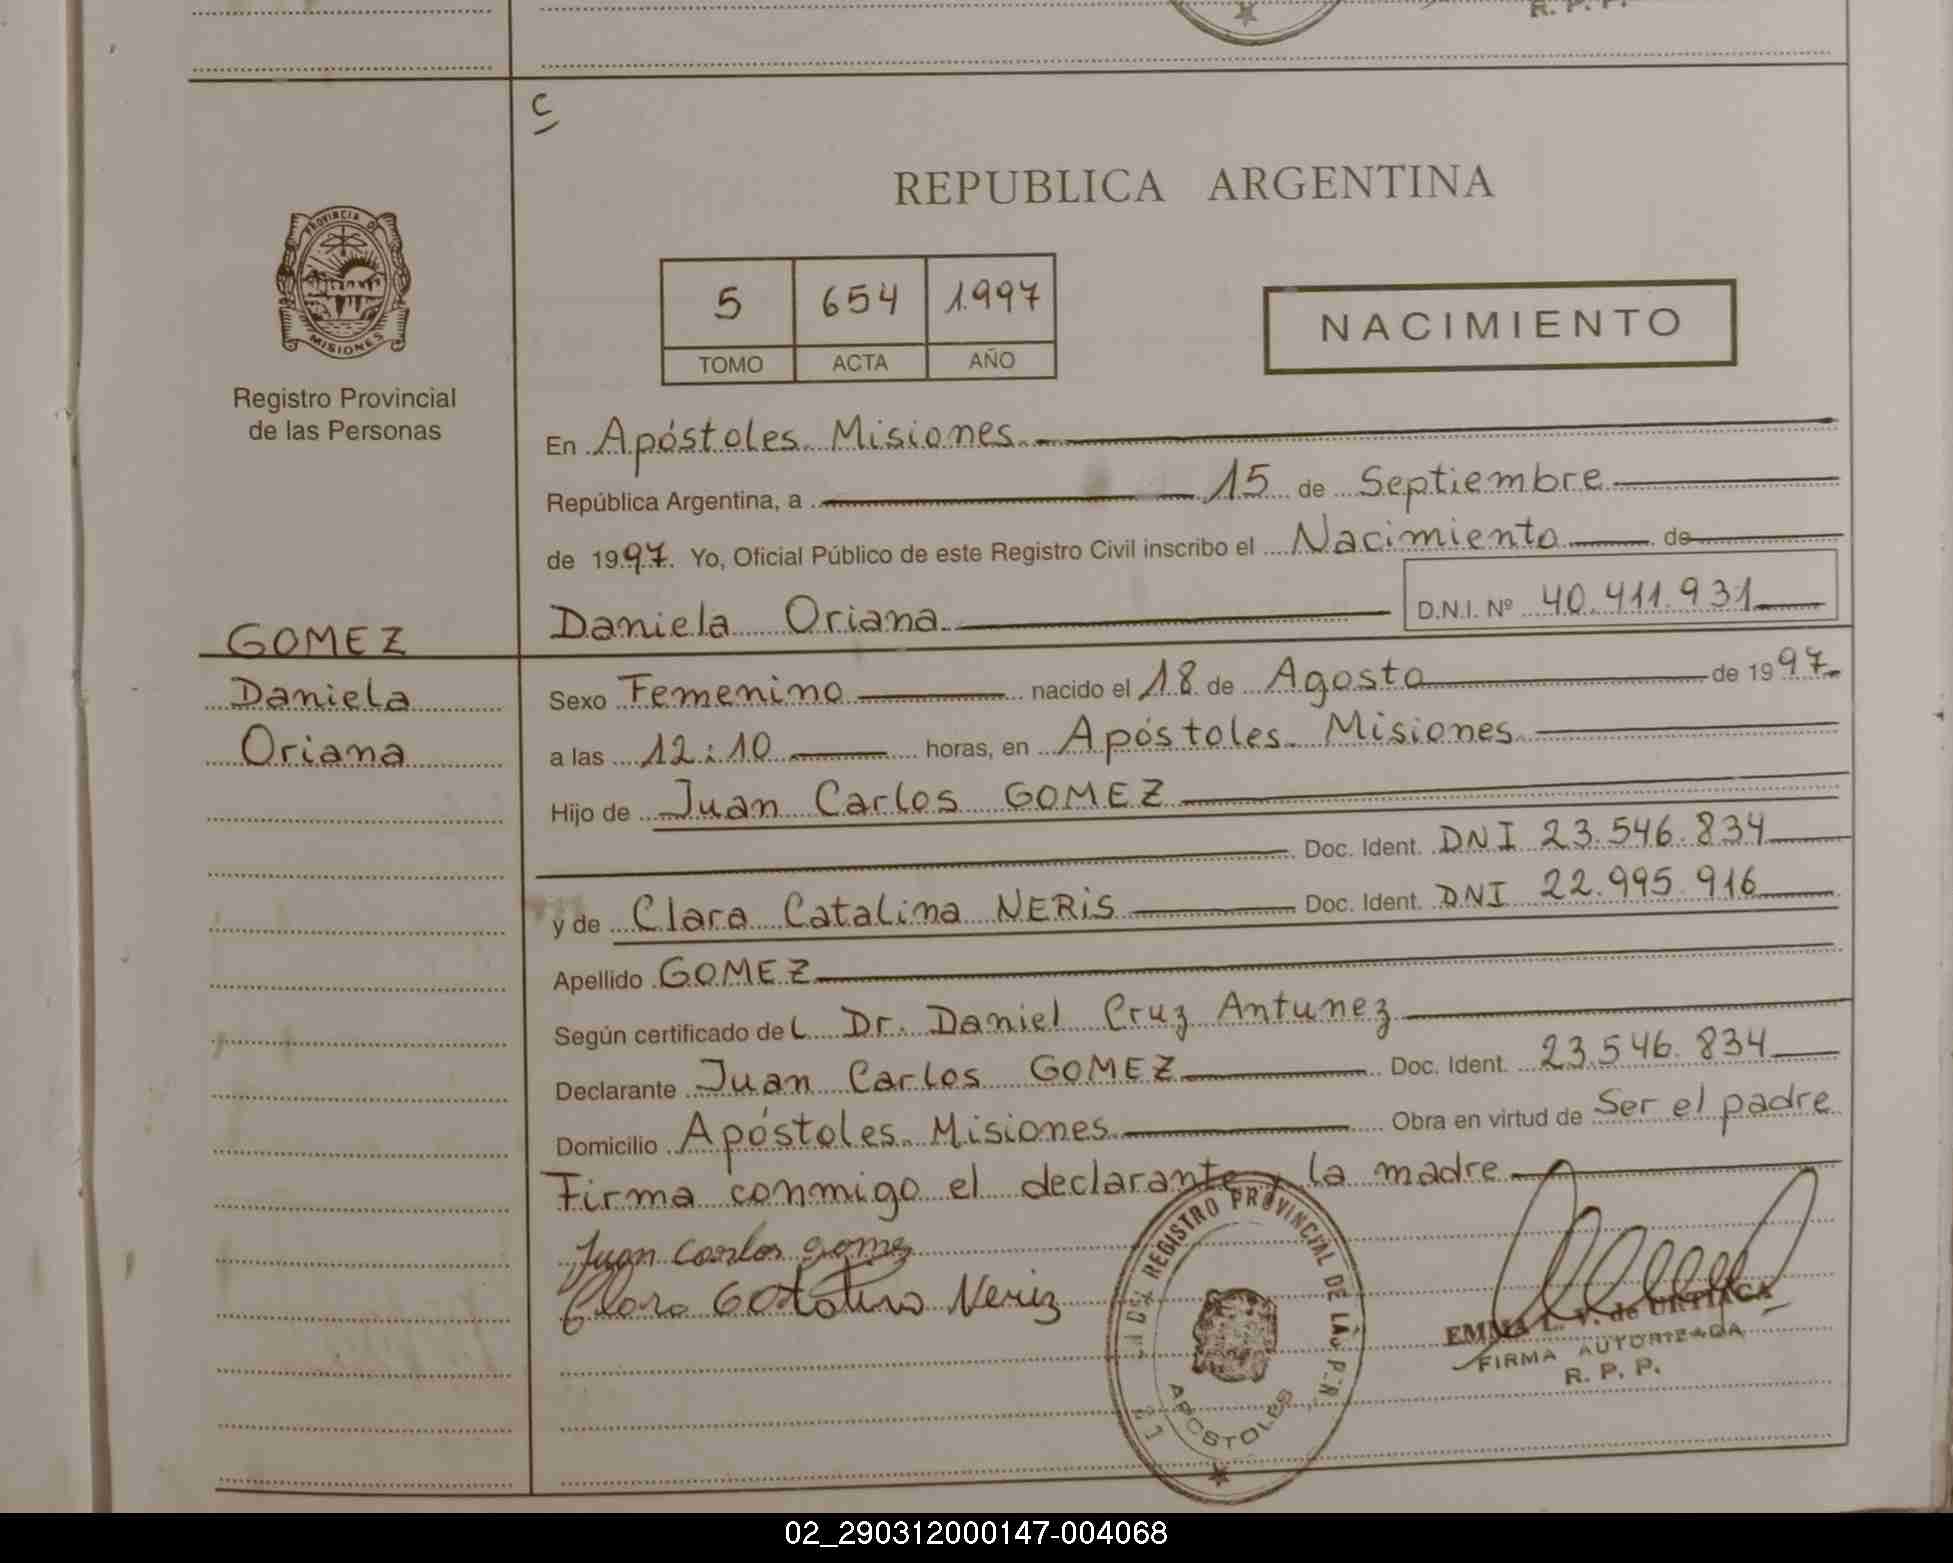 R. P. P.
C
PROVINCIA DE
MISIONES
Registro Provincial
de las Personas
REPUBLICA ARGENTINA
5 654 1.997
TOMO ACTA AÑO
NACIMIENTO
En Apóstoles Misiones
República Argentina, a 15 de Septiembre
de 1997. Yo, Oficial Público de este Registro Civil inscribo el Nacimiento de
Daniela Oriana D.N.I. Nº 40.411.931
GOMEZ
Daniela
Oriana
Sexo Femenino nacido el 18 de Agosto de 1997
a las 12:10 horas, en Apóstoles Misiones
Hijo de Juan Carlos GOMEZ
Doc. Ident. DNI 23.546.834
y de Clara Catalina NERIS Doc. Ident. DNI 22.995.916
Apellido GOMEZ
Según certificado del Dr. Daniel Cruz Antunez
Declarante Juan Carlos GOMEZ Doc. Ident. 23.546.834
Domicilio Apóstoles Misiones Obra en virtud de Ser el padre
Firma conmigo el declarante y la madre
Juan Carlos gomez
Clara Catalina Neriz
REGISTRO PROVINCIAL DE LAS P.R.
APOSTOLES
EMMA L. V. de URTIAGA
FIRMA AUTORIZADA
R. P. P.
02_290312000147-004068